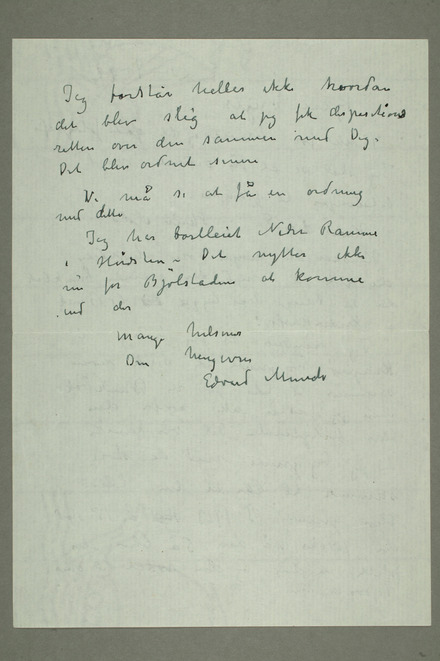 Jeg forstår heller ikke hvordan
det blev slig at jeg fik dispositions
retten over den sammen med Dig.
Det blev ordnet senere
Vi må se at få en ordning
med dette
Jeg har bortleiet Nedre Ramme
i Hvidsten – Det nytter ikke
nu for Bjölstadene at komme
ned der
Mange hilsener
Din hengivne
Edvard Munch